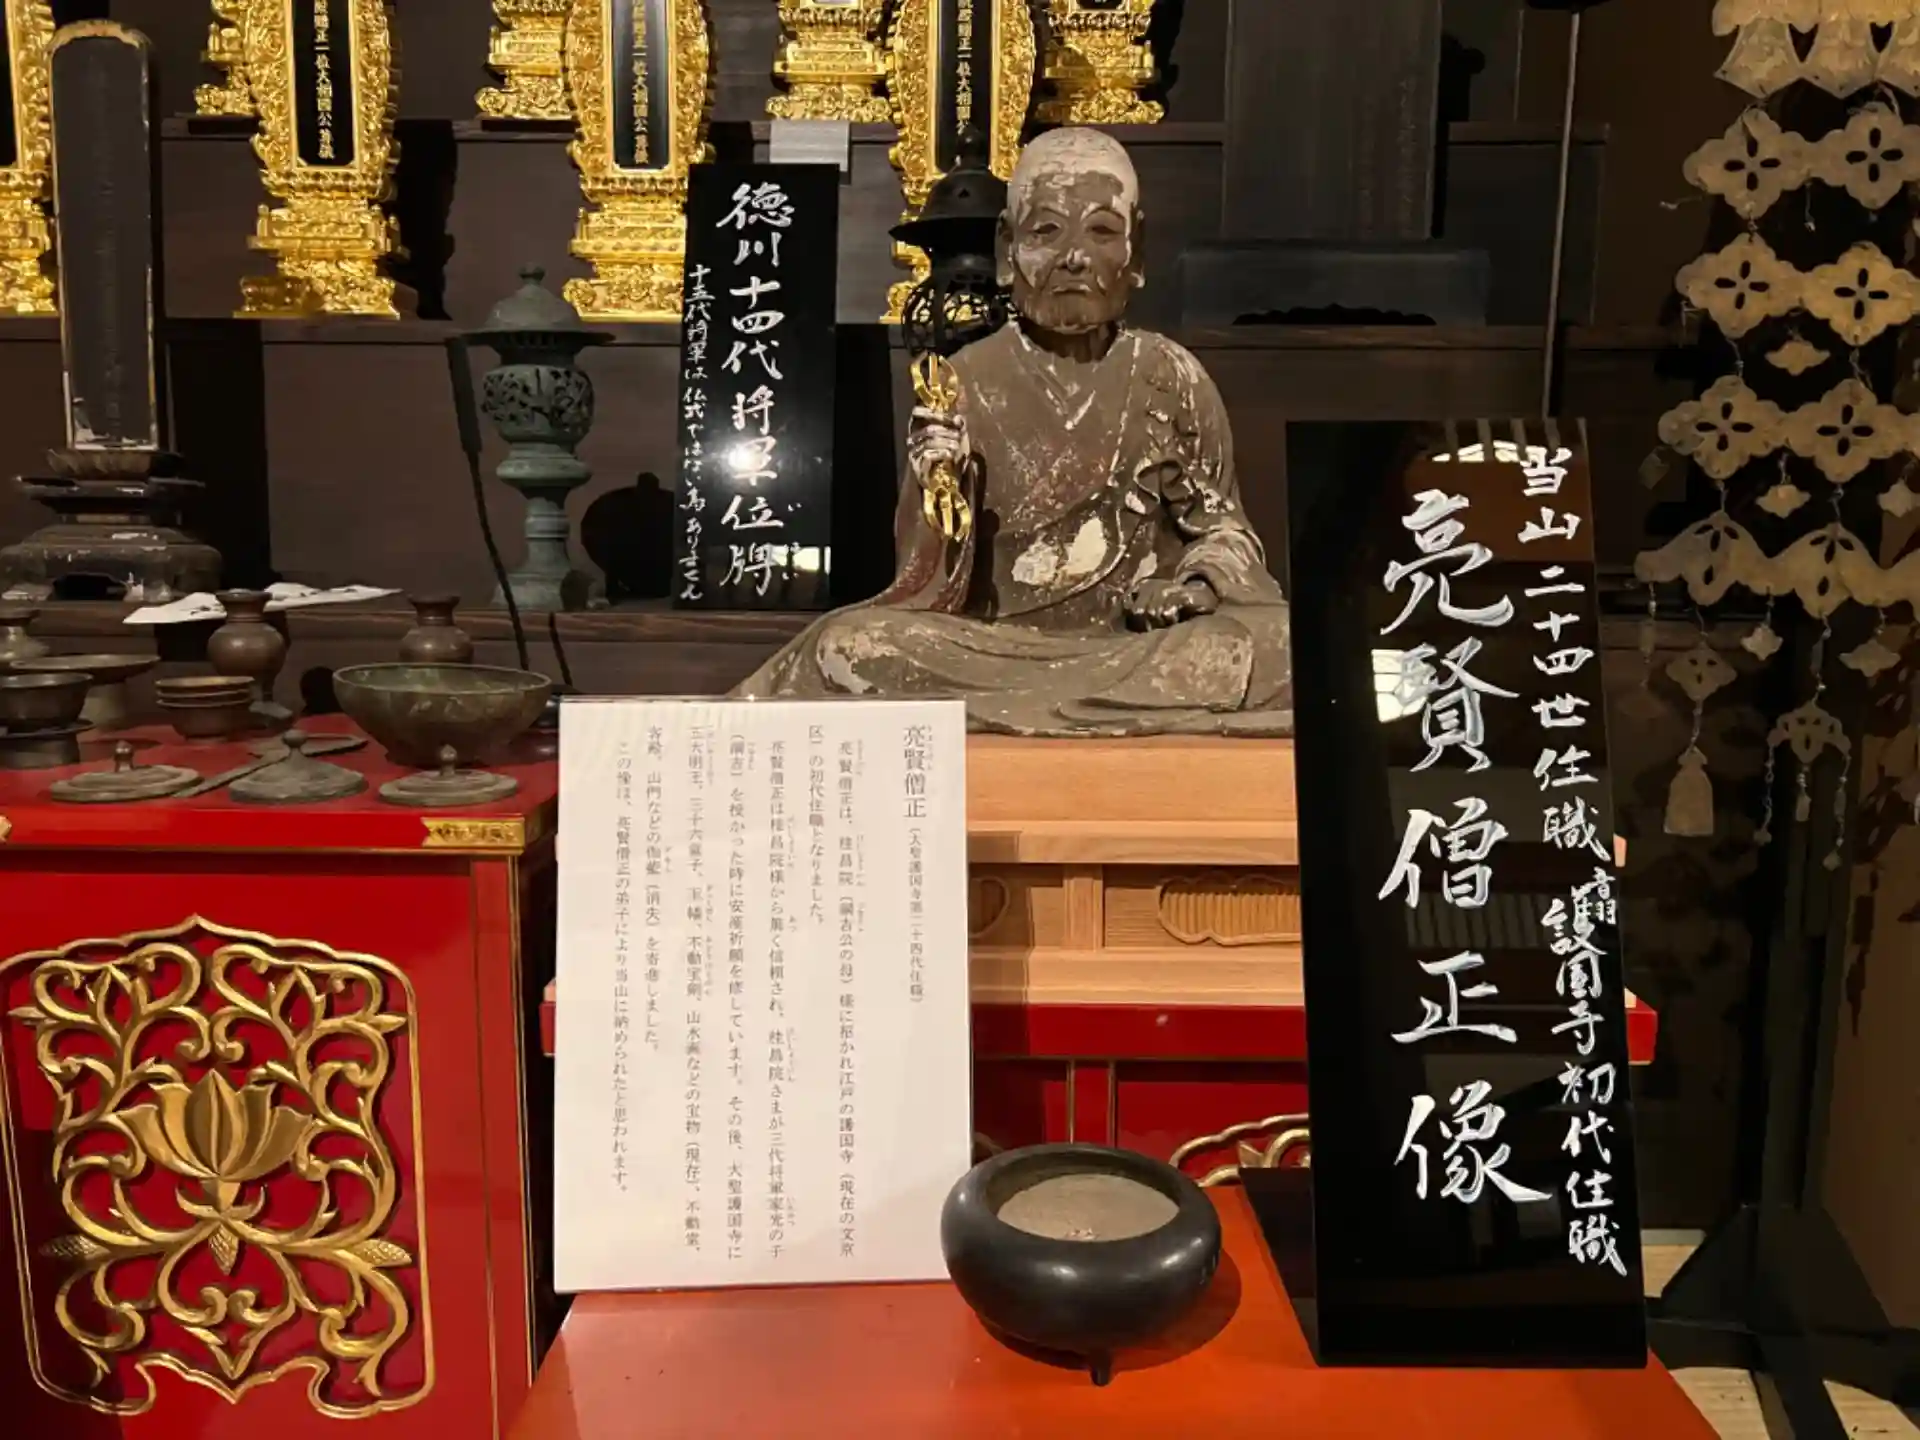 贈正一位大相国公尊儀
贈正一位大相国公尊儀
正一位大相国公
徳川十四代将軍位牌
いはい
十五代将軍は仏式ではない為ありません
当山二十四世住職
護国寺初代住職
亮賢僧正像
亮賢僧正(大聖護国寺第二十四代住職)
亮賢僧正は、桂昌院(綱吉公の母)様に招かれ江戸の護国寺(現在の文京
区)の初代住職となりました。
亮賢僧正は桂昌院様から篤く信頼され、桂昌院さまが三代将軍家光の子
(綱吉)を授かった時に安産祈願を修しています。その後、大聖護国寺に
五大明王、三十六童子、玉幡、不動宝剣、山水画などの宝物(現在)、不動堂、
客殿、山門などの伽藍(消失)を寄進しました。
この像は、亮賢僧正の弟子により当山に納められたと思われます。